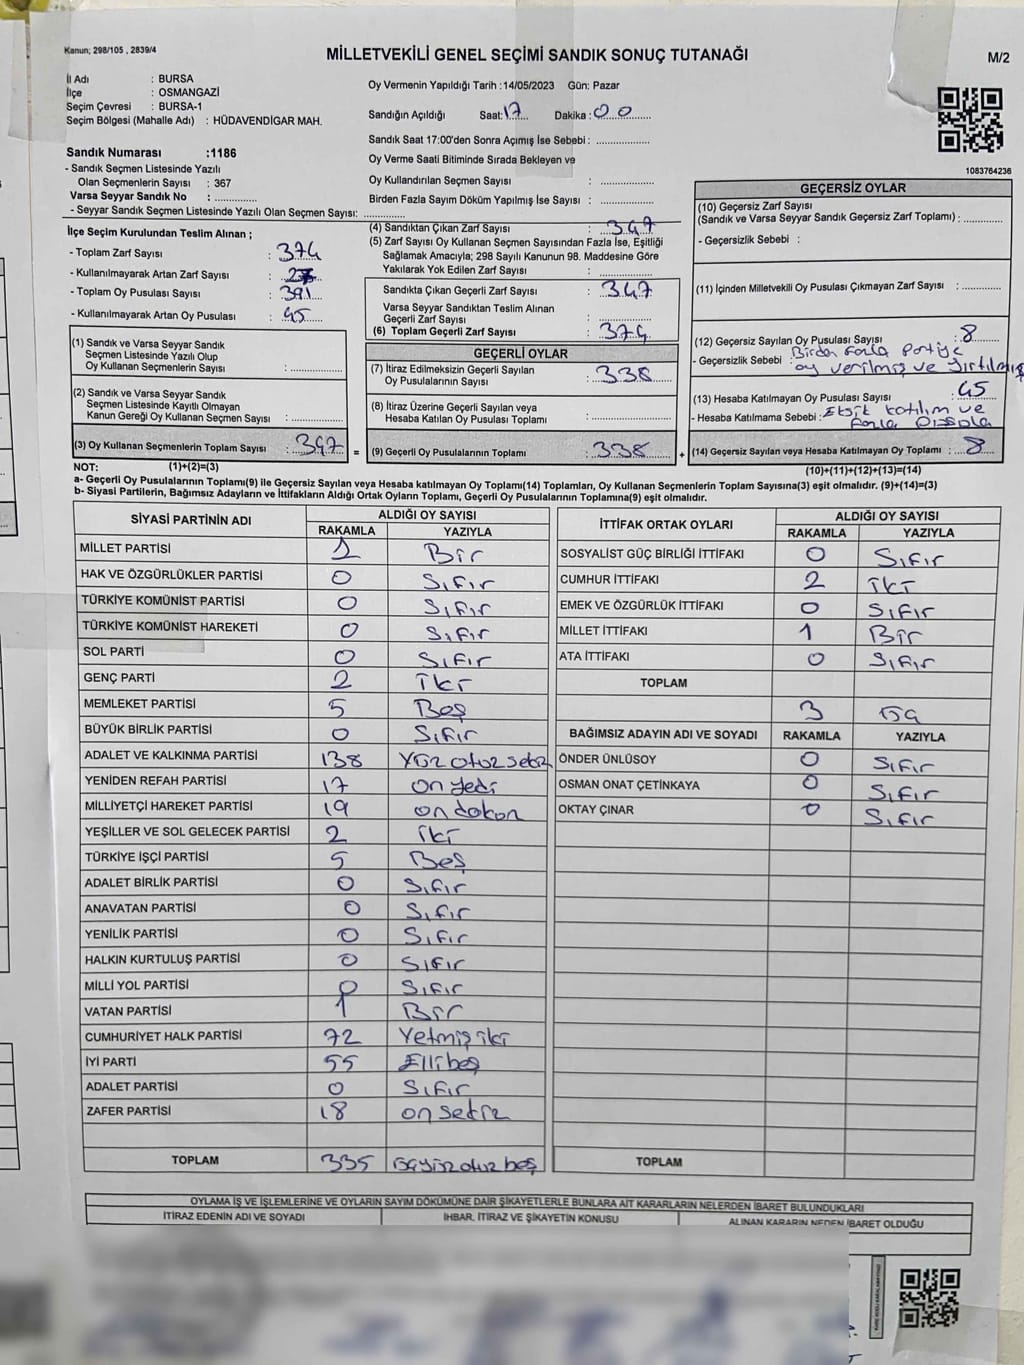 Kanun; 298/105 , 2839/4
MİLLETVEKİLİ GENEL SEÇİMİ SANDIK SONUÇ TUTANAĞI
M/2
İl Adı : BURSA
İlçe : OSMANGAZİ
Seçim Çevresi : BURSA-1
Seçim Bölgesi (Mahalle Adı) : HÜDAVENDİGAR MAH.
Sandık Numarası :1186
- Sandık Seçmen Listesinde Yazılı
Olan Seçmenlerin Sayısı : 367
Varsa Seyyar Sandık No :
- Seyyar Sandık Seçmen Listesinde Yazılı Olan Seçmen Sayısı:
Oy Vermenin Yapıldığı Tarih :14/05/2023 Gün: Pazar
Sandığın Açıldığı Saat: 17 Dakika : 00
Sandık Saat 17:00'den Sonra Açımış İse Sebebi :
Oy Verme Saati Bitiminde Sırada Bekleyen ve
Oy Kullandırılan Seçmen Sayısı :
Birden Fazla Sayım Döküm Yapılmış İse Sayısı :
1083764236
İlçe Seçim Kurulundan Teslim Alınan ;
- Toplam Zarf Sayısı : 374
- Kullanılmayarak Artan Zarf Sayısı :
- Toplam Oy Pusulası Sayısı : 391
- Kullanılmayarak Artan Oy Pusulası : 45
(1) Sandık ve Varsa Seyyar Sandık
Seçmen Listesinde Yazılı Olup
Oy Kullanan Seçmenlerin Sayısı :
(2) Sandık ve Varsa Seyyar Sandık
Seçmen Listesinde Kayıtlı Olmayan
Kanun Gereği Oy Kullanan Seçmen Sayısı :
(3) Oy Kullanan Seçmenlerin Toplam Sayısı : 347 =
(4) Sandıktan Çıkan Zarf Sayısı : 347
(5) Zarf Sayısı Oy Kullanan Seçmen Sayısından Fazla İse, Eşitliği
Sağlamak Amacıyla; 298 Sayılı Kanunun 98. Maddesine Göre
Yakılarak Yok Edilen Zarf Sayısı :
Sandıkta Çıkan Geçerli Zarf Sayısı : 347
Varsa Seyyar Sandıktan Teslim Alınan
Geçerli Zarf Sayısı :
(6) Toplam Geçerli Zarf Sayısı : 374
GEÇERLİ OYLAR
(7) İtiraz Edilmeksizin Geçerli Sayılan
Oy Pusulalarının Sayısı : 338
(8) İtiraz Üzerine Geçerli Sayılan veya
Hesaba Katılan Oy Pusulası Toplamı :
(9) Geçerli Oy Pusulalarının Toplamı : 338 +
GEÇERSİZ OYLAR
(10) Geçersiz Zarf Sayısı
(Sandık ve Varsa Seyyar Sandık Geçersiz Zarf Toplamı) :
- Geçersizlik Sebebi :
(11) İçinden Milletvekili Oy Pusulası Çıkmayan Zarf Sayısı :
(12) Geçersiz Sayılan Oy Pusulası Sayısı : 8
- Geçersizlik Sebebi : Birden fazla Partiye
oy verilmiş ve yırtılmış
(13) Hesaba Katılmayan Oy Pusulası Sayısı : 45
- Hesaba Katılmama Sebebi : Eksik katılım ve
fazla
(14) Geçersiz Sayılan veya Hesaba Katılmayan Oy Toplamı : 8
NOT: (1)+(2)=(3)
(10)+(11)+(12)+(13)=(14)
a- Geçerli Oy Pusulalarının Toplamı(9) ile Geçersiz Sayılan veya Hesaba katılmayan Oy Toplamı(14) Toplamları, Oy Kullanan Seçmenlerin Toplam Sayısına(3) eşit olmalıdır. (9)+(14)=(3)
b- Siyasi Partilerin, Bağımsız Adayların ve İttifakların Aldığı Ortak Oyların Toplamı, Geçerli Oy Pusulalarının Toplamına(9) eşit olmalıdır.
SİYASİ PARTİNİN ADI ALDIĞI OY SAYISI
RAKAMLA YAZIYLA
MİLLET PARTİSİ 1 Bir
HAK VE ÖZGÜRLÜKLER PARTİSİ 0 Sıfır
TÜRKİYE KOMÜNİST PARTİSİ 0 Sıfır
TÜRKİYE KOMÜNİST HAREKETİ 0 Sıfır
SOL PARTİ 0 Sıfır
GENÇ PARTİ 2 İki
MEMLEKET PARTİSİ 5 Beş
BÜYÜK BİRLİK PARTİSİ 0 Sıfır
ADALET VE KALKINMA PARTİSİ 138 Yüz otuz sekiz
YENİDEN REFAH PARTİSİ 17 on yedi
MİLLİYETÇİ HAREKET PARTİSİ 19 on dokuz
YEŞİLLER VE SOL GELECEK PARTİSİ 2 iki
TÜRKİYE İŞÇİ PARTİSİ 5 Beş
ADALET BİRLİK PARTİSİ 0 Sıfır
ANAVATAN PARTİSİ 0 Sıfır
YENİLİK PARTİSİ 0 Sıfır
HALKIN KURTULUŞ PARTİSİ 0 Sıfır
MİLLİ YOL PARTİSİ 0 Sıfır
VATAN PARTİSİ 1 Bir
CUMHURİYET HALK PARTİSİ 72 Yetmiş iki
İYİ PARTİ 55 Elli beş
ADALET PARTİSİ 0 Sıfır
ZAFER PARTİSİ 18 on sekiz
TOPLAM 335 üçyüz otuz beş
İTTİFAK ORTAK OYLARI ALDIĞI OY SAYISI
RAKAMLA YAZIYLA
SOSYALİST GÜÇ BİRLİĞİ İTTİFAKI 0 Sıfır
CUMHUR İTTİFAKI 2 iki
EMEK VE ÖZGÜRLÜK İTTİFAKI 0 Sıfır
MİLLET İTTİFAKI 1 Bir
ATA İTTİFAKI 0 Sıfır
TOPLAM
3 üç
BAĞIMSIZ ADAYIN ADI VE SOYADI RAKAMLA YAZIYLA
ÖNDER ÜNLÜSOY 0 Sıfır
OSMAN ONAT ÇETİNKAYA 0 Sıfır
OKTAY ÇINAR 0 Sıfır
TOPLAM
OYLAMA İŞ VE İŞLEMLERİNE VE OYLARIN SAYIM DÖKÜMÜNE DAİR ŞİKAYETLERLE BUNLARA AİT KARARLARIN NELERDEN İBARET BULUNDUKLARI
İTİRAZ EDENİN ADI VE SOYADI İHBAR, İTİRAZ VE ŞİKAYETİN KONUSU ALINAN KARARIN NEDEN İBARET OLDUĞU